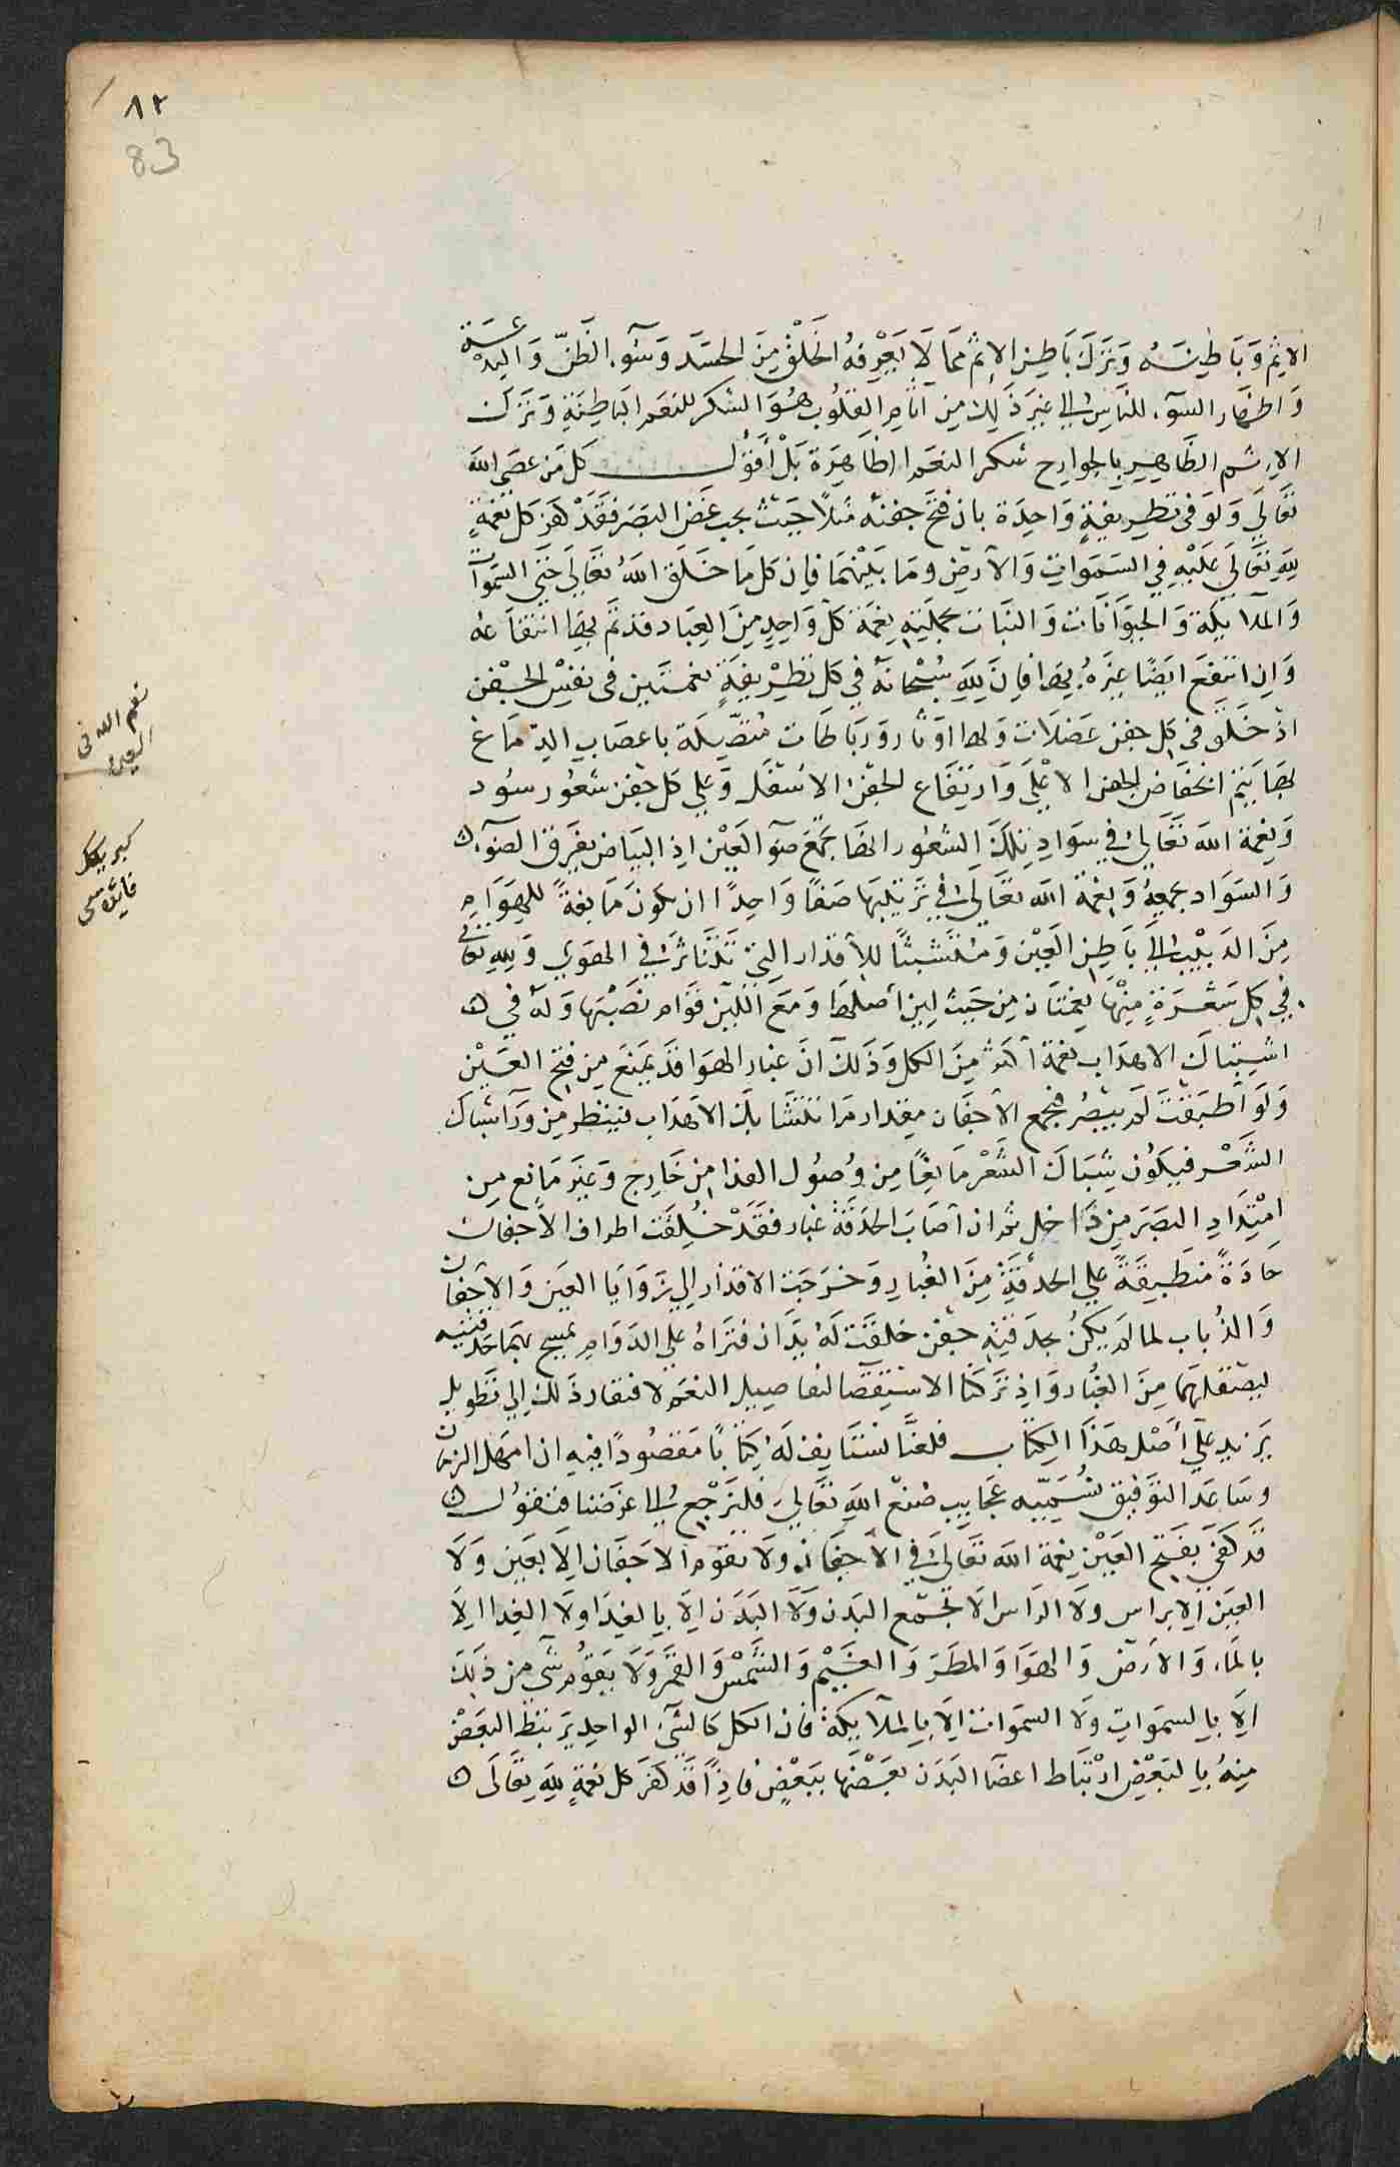 ٨٢
83
الاثم وباطنه وترك باطن الاثم مما لا يعرفه الخلق من الحسد وسوء الظن والبدعة
واظهار السوء للناس الى غير ذلك من آثام القلوب هو الشكر للنعم الباطنة وترك
الاثم الظاهر بالجوارح شكر النعم الظاهرة بل أقول كل من عصى الله
تعالى ولو في تطريفة واحدة بان فتح جفنه مثلا حيث يجب غض البصر فقد كفر كل نعمة
لله تعالى عليه في السموات والارض وما بينهما فان كل ما خلق الله تعالى حتى السموات
والملائكة والحيوانات والنبات بجملته نعمة كل واحد من العباد قد تم بها انتفاعه
وان انتفع ايضا غيره بها فان لله سبحانه في كل تطريفة نعمتين في نفس الجفن
اذ خلق في كل جفن عضلات ولها اوتار ورباطات متصلة باعصاب الدماغ
بها يتم انخفاض الجفن الاعلى وارتفاع الجفن الاسفل وعلى كل جفن شعور سود
ونعمة الله تعالى في سواد تلك الشعور انها تجمع ضوء العين اذ البياض يفرق الضوء
والسواد يجمعه ونعمة الله تعالى في ترتيبها صفا واحدا ان يكون مانعة للهوام
من الدبيب الى باطن العين ومتشبثا للاقذار التي تتناثر في الهوى ولله تعالى
في كل شعرة منها نعمتان من حيث لين أصلها ومع اللين قوام نصبتها وله في
اشتباك الاهداب نعمة اكثر من الكل وذلك ان غبار الهوا قد يمنع من فتح العين
ولو أطبقت لم يبصر فيجمع الاجفان مقدار ما تتشابك الاهداب فينظر من ورآ شباك
الشعر فيكون شباك الشعر مانعا من وصول القذا من خارج وغير مانع من
امتداد البصر من داخل ثم ان أصاب الحدقة غبار فقد خلقت اطراف الاجفان
حادة منطبقة على الحدقة من الغبار وخرجت الاقذار الى زوايا العين والاجفان
والذباب لما لم يكن بحدقته جفن خلقت له يدان فتراه على الدوام يمسح بهما حدقتيه
ليصقلهما من الغبار واذ تركنا الاستقصا لتفاصيل النعم لافتقار ذلك الى تطويل
يزيد على أصل هذا الكتاب فلعلنا نستانف له كتابا مقصودا فيه ان امهل الزمان
وساعد التوفيق نسميه عجايب صنع الله تعالى فلنرجع الى غرضنا فنقول
قد كفر بفتح العين نعمة الله تعالى في الاجفان ولا تقوم الاجفان الا بعين ولا
العين الا براس ولا الراس الا بجميع البدن ولا البدن الا بالغذا ولا الغذا الا
بالماء والارض والهوا والمطر والغيم والشمس والقمر ولا يقوم شي من ذلك
الا بالسموات ولا السموات الا بالملائكة فان الكل كالشي الواحد يرتبط البعض
منه بالبعض ارتباط اعضا البدن بعضها ببعض فاذا قد كفر كل نعمة لله تعالى
نعم الله في
العين
كبر بيكك